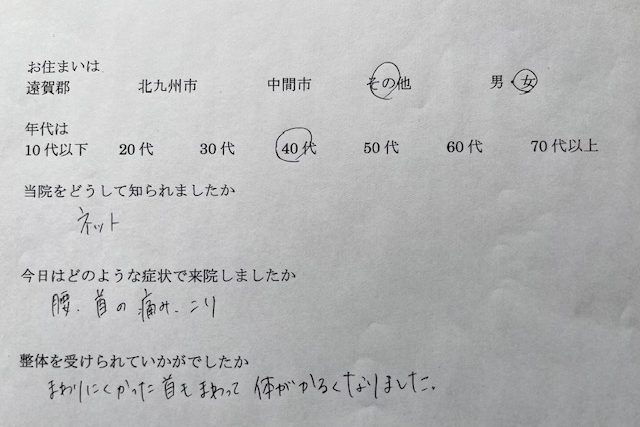 お住まいは
遠賀郡 北九州市 中間市 その他 男・女
年代は
10代以下 20代 30代 40代 50代 60代 70代以上
当院をどうして知られましたか
ネット
今日はどのような症状で来院しましたか
腰、首の痛み、こり
整体を受けられていかがでしたか
まわりにくかった首もまわって 体がかるくなりました。